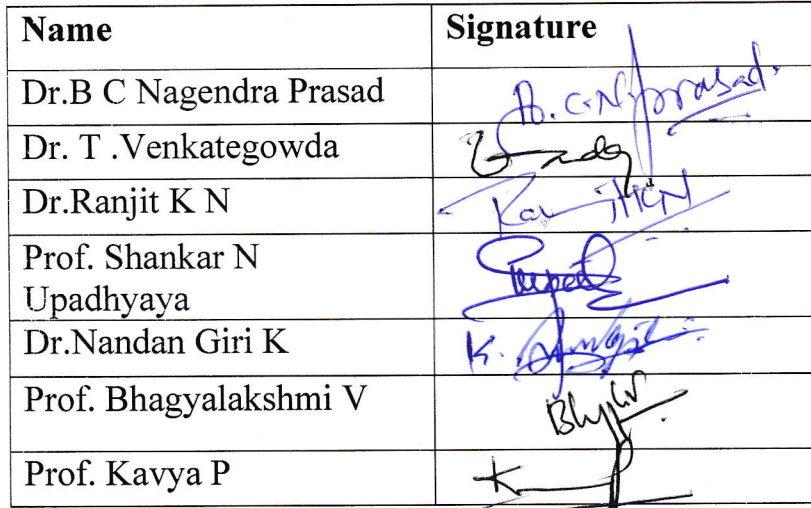 Name Signature
Dr.B C Nagendra Prasad B.C.N.prasad.
Dr. T .Venkategowda
Dr.Ranjit K N RanjithKN
Prof. Shankar N
Upadhyaya
Dr.Nandan Giri K K.
Prof. Bhagyalakshmi V
Prof. Kavya P K